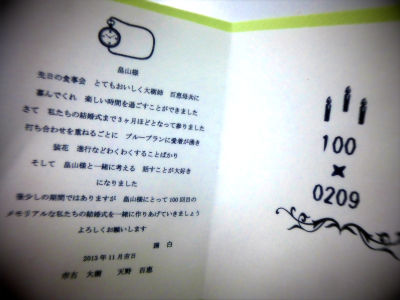 畠山様
先日の食事会　とてもおいしく大樹姉　百恵母共に
喜んでくれ　楽しい時間を過ごすことができました
さて　私たちの結婚式まで3ヶ月ほどとなって参りました
打ち合わせを重ねるごとに　ブループランに愛着が湧き
装花　進行などわくわくすることばかり
そして　畠山様と一緒に考える　話すことが大好き
になりました
後少しの期間ではありますが　畠山様にとって100回目の
メモリアルな私たちの結婚式を一緒に作りあげていきましょう
よろしくお願いします
謹　白
2013年11月吉日
市古　大樹　　天野　百恵
100
×
0209